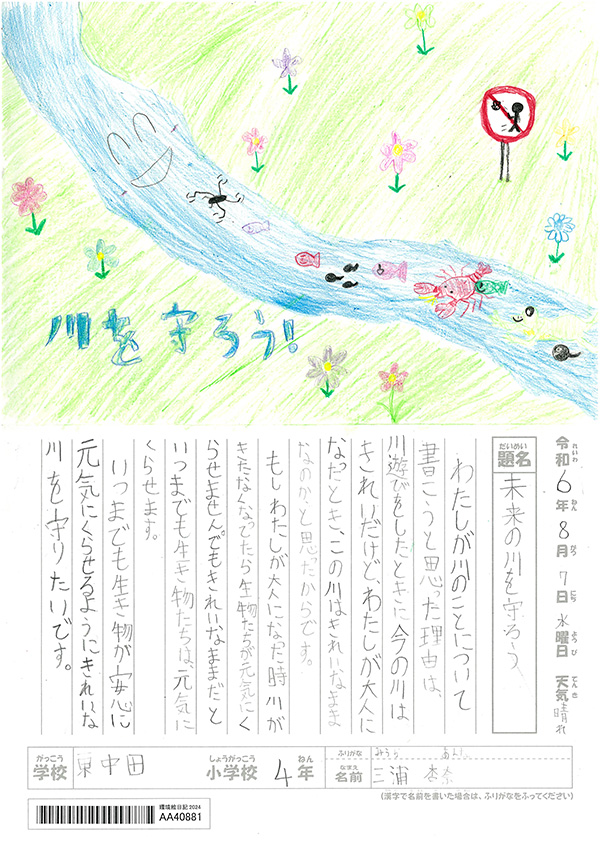 川を守ろう!
令和6年8月7日水曜日 天気晴れ
れいわ ねん がつ にち ようび てんき
だいめい
題名
未来の川を守ろう
わたしが川のことについて
書こうと思った理由は、
川遊びをしたときに今の川は
きれいだけど、わたしが大人に
なったとき、この川はきれいなまま
なのかと思ったからです。
もしわたしが大人になった時川が
きたなくなってたら生き物たちが元気にく
らせません。でもきれいなままだと
いつまでも生き物たちは、元気に
くらせます。
いつまでも生き物が安心に
元気にくらせるようにきれいな
川を守りたいです。
がっこう
学校
東中田
しょうがっこう
小学校
4年
ねん
ふりがな
みうら あんな
なまえ
名前
三浦 杏奈
(漢字で名前を書いた場合は、ふりがなをふってください)
環境絵日記2024
AA40881